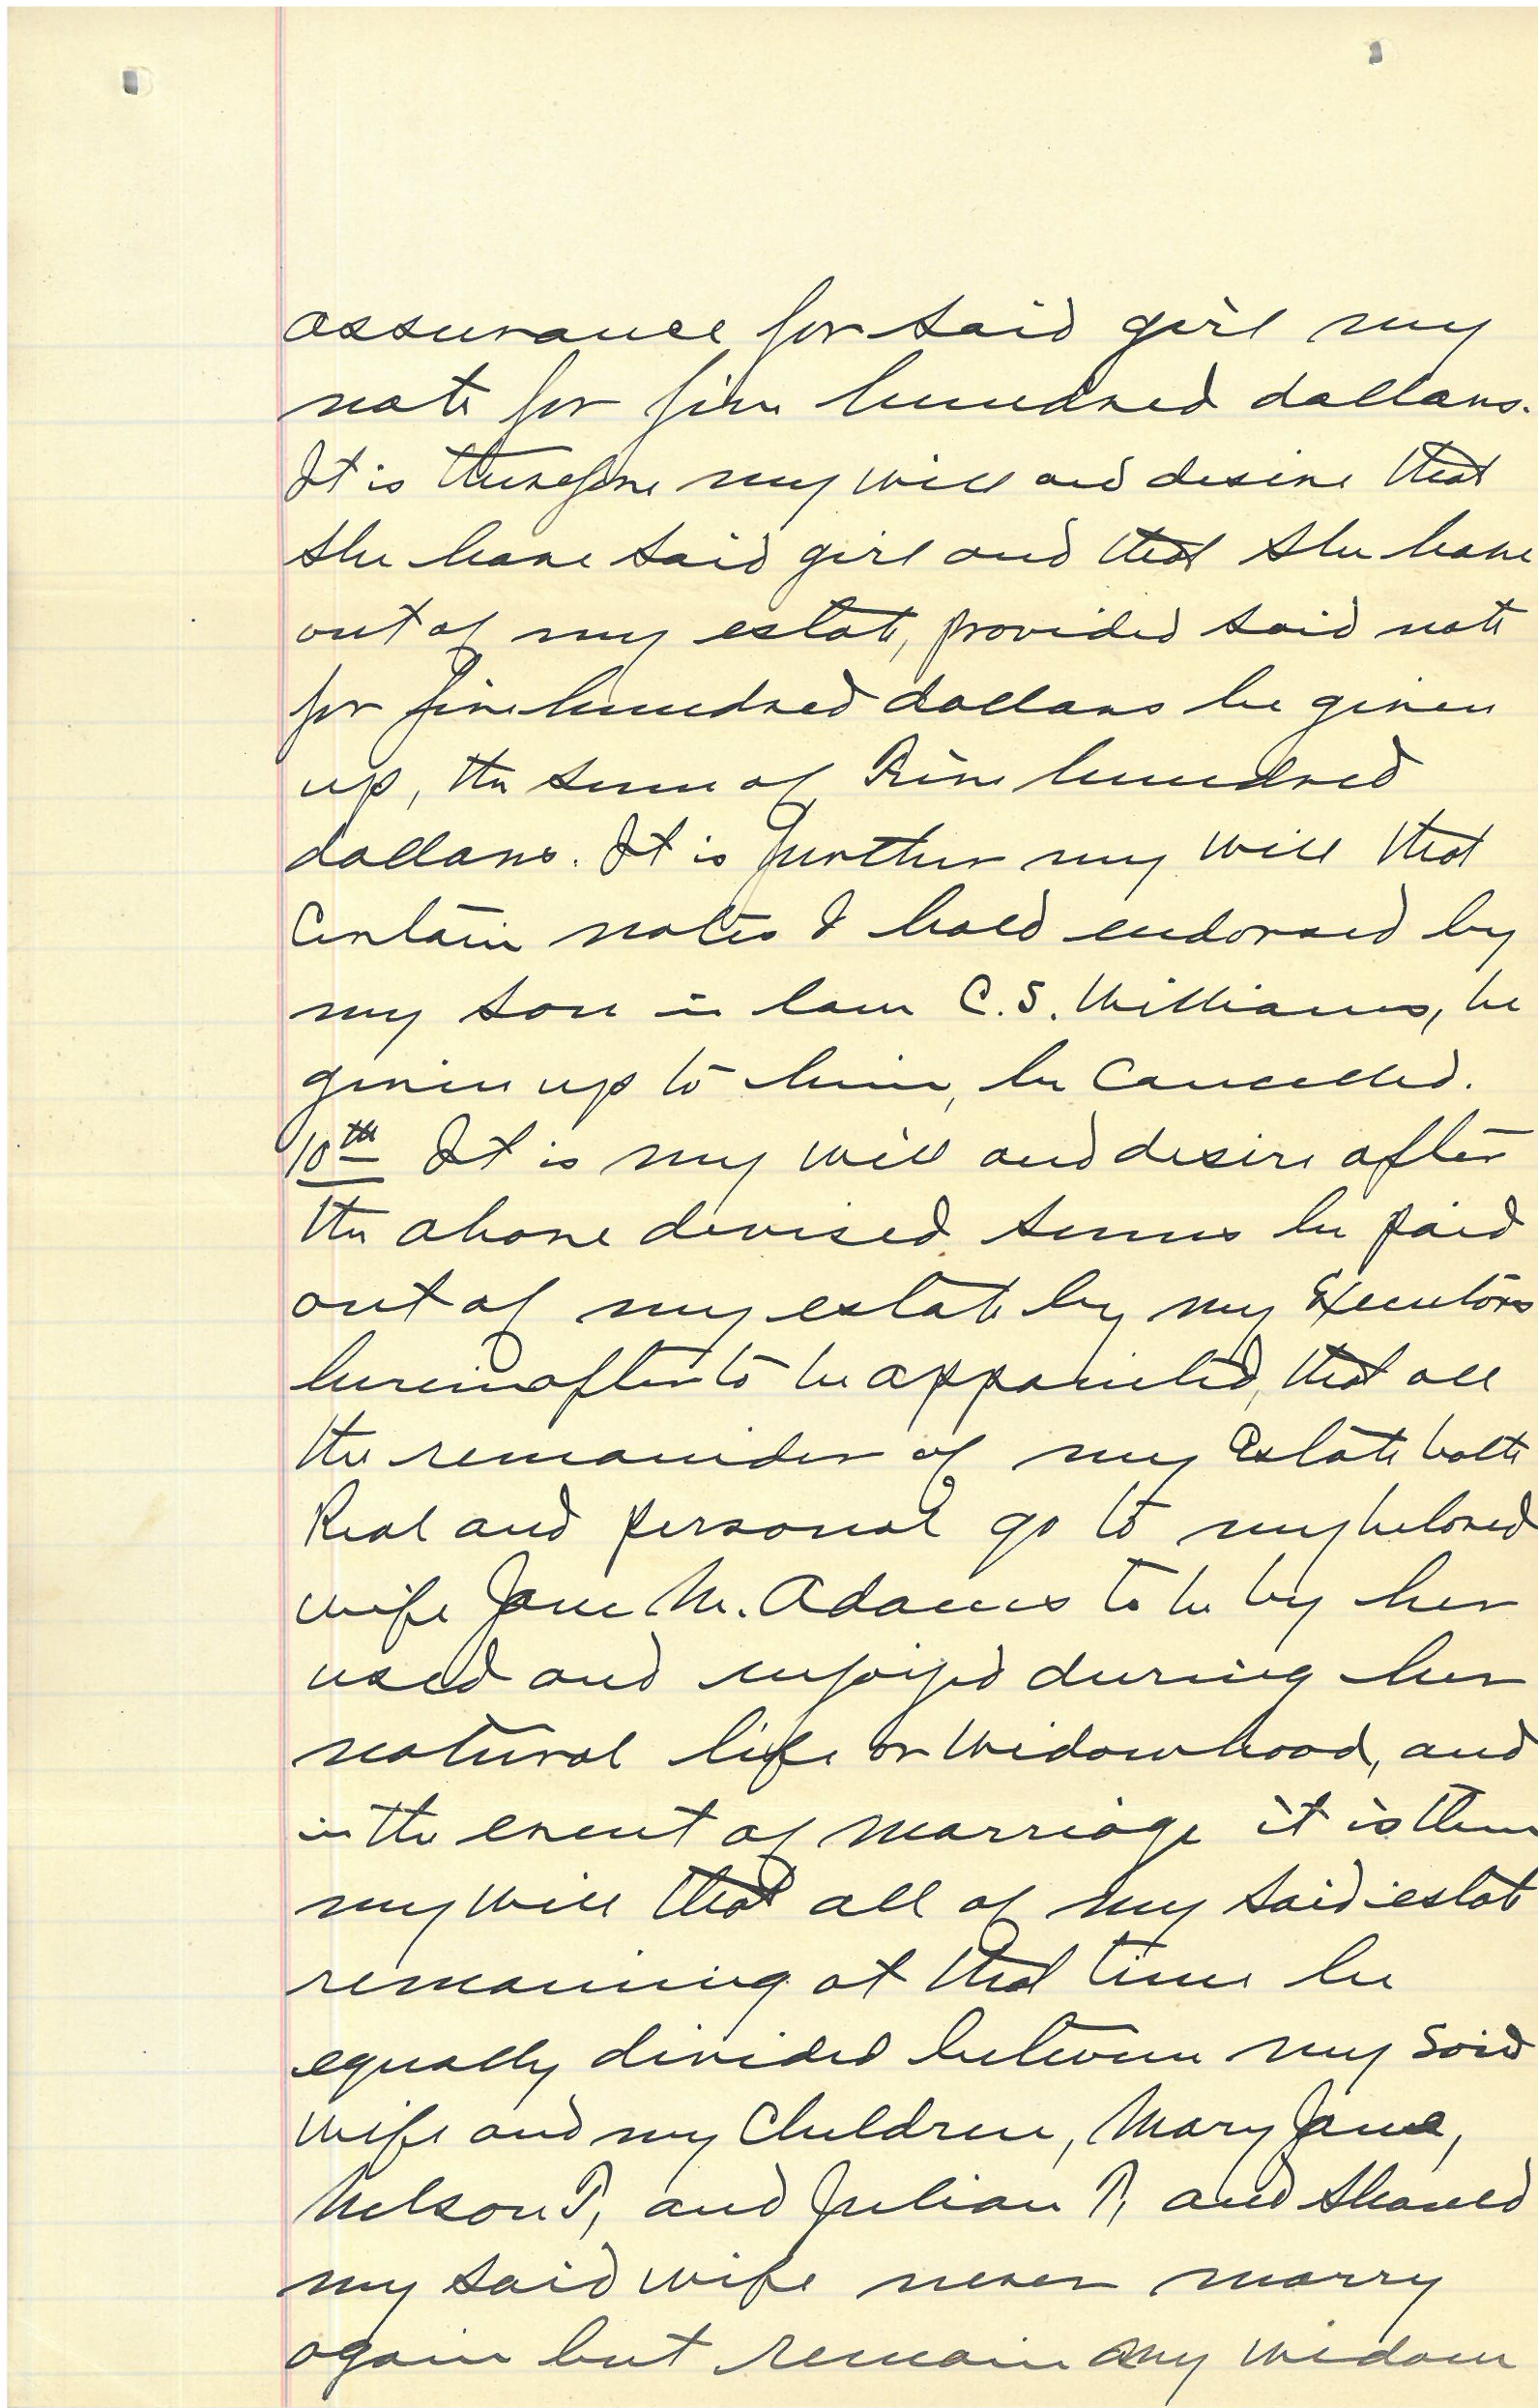 assurance for said girl my
note for five hundred dollars.
It is therefore my will and desire that
she have said girl and that she have
out of my estate, provided said note
for five hundred dollars be given
up, the sum of Five hundred
dollars. It is further my will that
Certain notes I hold endorsed by
my son in law C. S. Williams, be
given up to him, be Cancelled.
10th It is my will and desire after
the above devised sums be paid
out of my estate by my Executors
hereinafter to be appointed, that all
the remainder of my Estate both
Real and personal go to my beloved
wife Jane M. Adams to be by her
used and enjoyed during her
natural life or Widowhood, and
in the event of marriage it is then
my will that all of my said estate
remaining at that time be
equally divided between my said
wife and my Children, Mary Jane,
Nelson T, and Julian T, and should
my said wife never marry
again but remain my widow